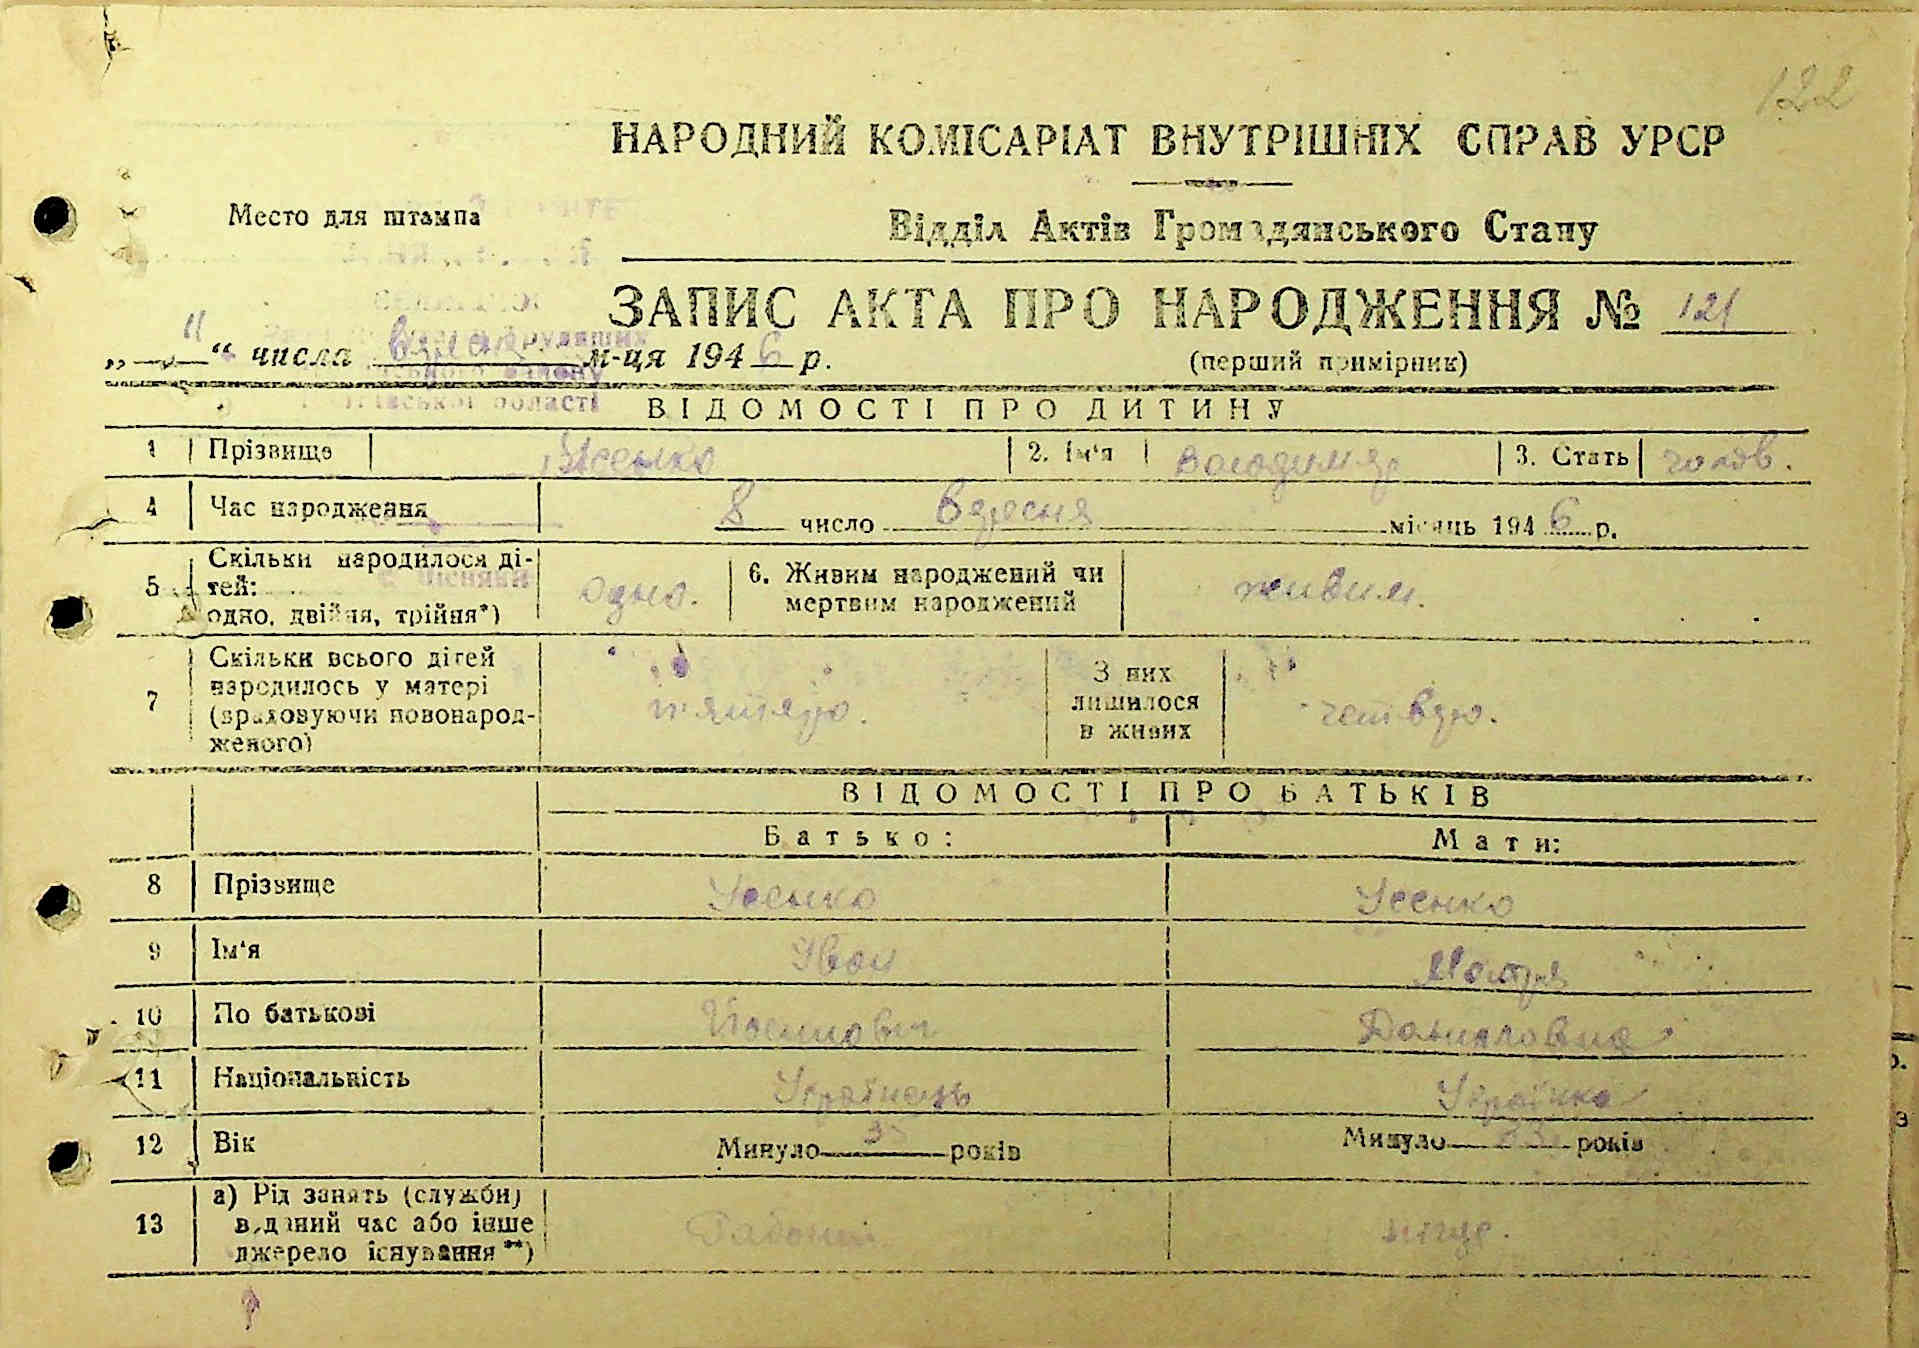 122
НАРОДНИЙ КОМІСАРІАТ ВНУТРІШНІХ СПРАВ УРСР
Место для штампа
Відділ Актів Громадянського Стану
ЗАПИС АКТА ПРО НАРОДЖЕННЯ № 121
„ 11 “ числа вересня м-ця 1946 р.
(перший примірник)
області
ВІДОМОСТІ ПРО ДИТИНУ
1 Прізвище Усенко 2. Ім'я Володимир 3. Стать чолов.
4 Час народження 8 число Вересня місяць 1946 р.
5 Скільки народилося ді-
тей:
одно, двійня, трійня*) одно. 6. Живим народжений чи
мертвим народжений живим.
7 Скільки всього дітей
народилось у матері
(враховуючи новонарод-
женого) п'ятеро. З них
лишилося
в живих четверо.
ВІДОМОСТІ ПРО БАТЬКІВ
Батько: Мати:
8 Прізвище Усенко Усенко
9 Ім'я Іван Мотря
10 По батькові Йосипович Даниловна
11 Національність Українець Українка
12 Вік Минуло 35 років Минуло років
13 а) Рід занять (служби)
в даний час або інше
джерело існування**)